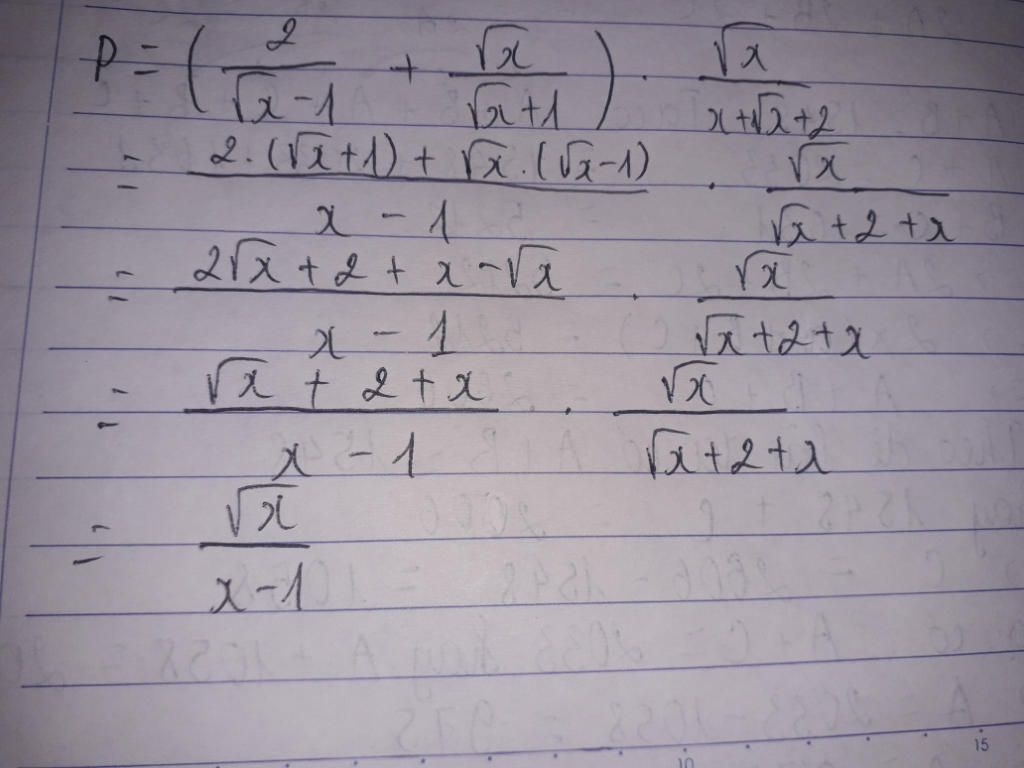 P = (2/(√x − 1) + √x/(√x + 1)) · √x/(x + √x + 2)
= (2·(√x + 1) + √x·(√x − 1))/(x − 1) · √x/(√x + 2 + x)
= (2√x + 2 + x − √x)/(x − 1) · √x/(√x + 2 + x)
= (√x + 2 + x)/(x − 1) · √x/(√x + 2 + x)
= √x/(x − 1)
10
15